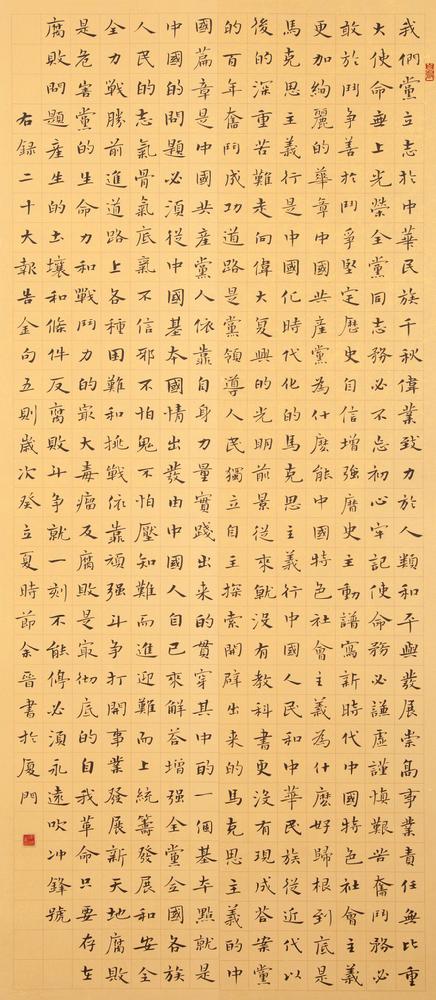 我們黨立志於中華民族千秋偉業致力於人類和平與發展崇高事業責任無比重
大使命無上光榮全黨同志務必不忘初心牢記使命務必謙虛謹慎艱苦奮鬥務必
敢於鬥爭善於鬥爭堅定歷史自信增強歷史主動譜寫新時代中國特色社會主義
更加絢麗的華章中國共產黨為什麼能中國特色社會主義為什麼好歸根到底是
馬克思主義行是中國化時代化的馬克思主義行中國人民和中華民族從近代以
後的深重苦難走向偉大復興的光明前景從來就沒有教科書更沒有現成答案黨
的百年奮鬥成功道路是黨領導人民獨立自主探索開闢出來的馬克思主義的中
國篇章是中國共產黨人依靠自身力量實踐出來的貫穿其中的一個基本點就是
中國的問題必須從中國基本國情出發由中國人自己來解答增强全黨全國各族
人民的志氣骨氣底氣不信邪不怕鬼不怕壓知難而進迎難而上統籌發展和安全
全力戰勝前進道路上各種困難和挑戰依靠頑强斗爭打開事業發展新天地腐敗
是危害黨的生命力和戰鬥力的最大毒瘤反腐敗是最彻底的自我革命只要存在
腐敗問題產生的土壤和條件反腐敗斗爭就一刻不能停必須永遠吹冲鋒號
右録二十大報告金句五則歲次癸立夏時節余晉書於厦門